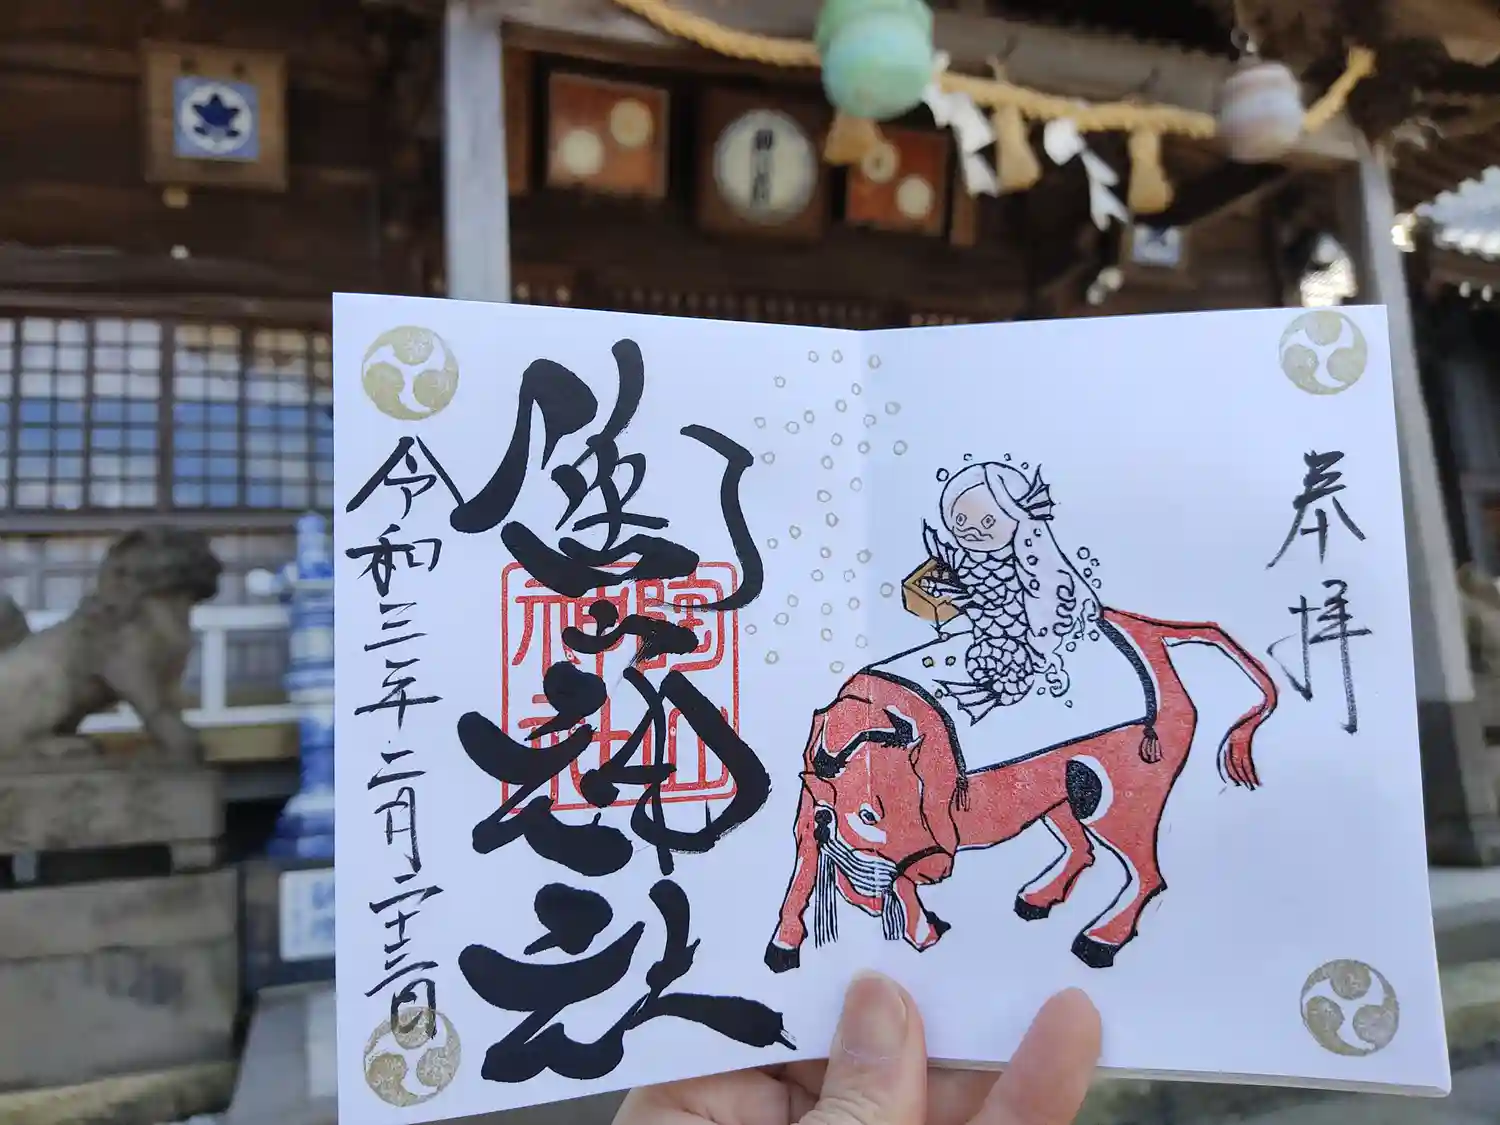 奉拝
陶山神社
陶山
神社
令和三年二月二十三日